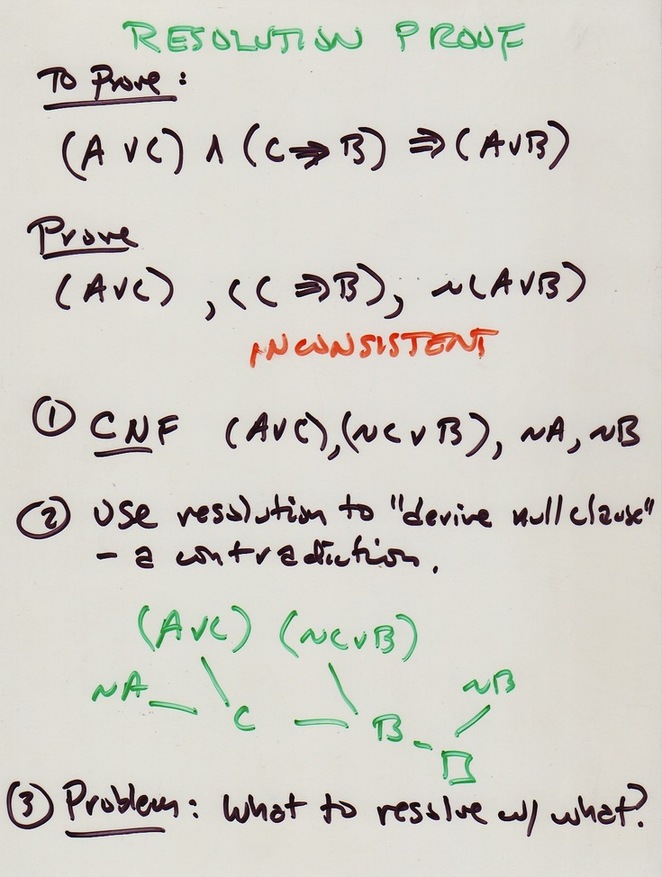 RESOLUTION PROOF
To Prove:
(A ∨ C) ∧ (C ⇒ B) ⇒ (A ∨ B)
Prove
(A ∨ C), (C ⇒ B), ~(A ∨ B)
INCONSISTENT
① CNF (A ∨ C), (~C ∨ B), ~A, ~B
② Use resolution to "derive null clause"
– a contradiction.
(A ∨ C) (~C ∨ B)
~A ~B
C B □
③ Problem: What to resolve w/ what?